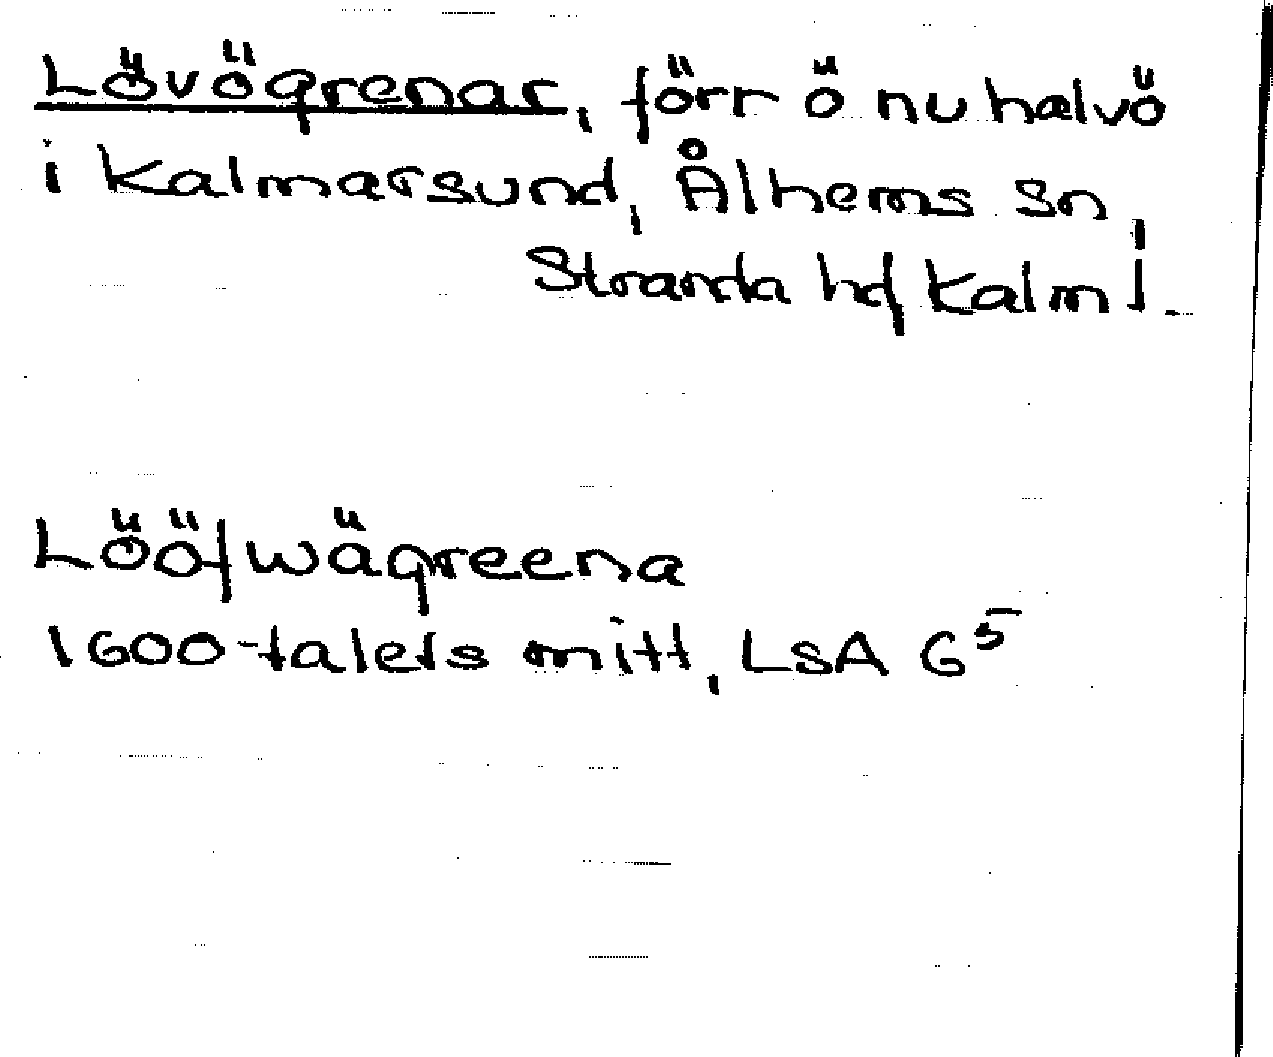 Lövögrenar, förr ö nu halvö
i Kalmarsund, Ålhems sn,
Stranda hd Kalm l.
Lööfwägreena
1600-talets mitt, LsA G⁵